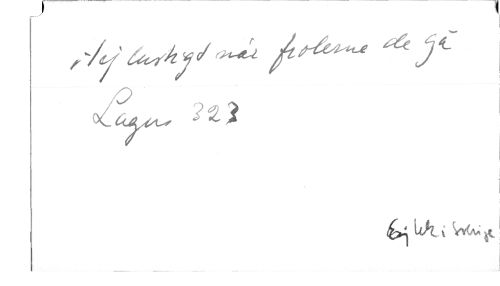 Hej lustigt när fiolerne de gå
Lagus 323
Ej lek i Sverige